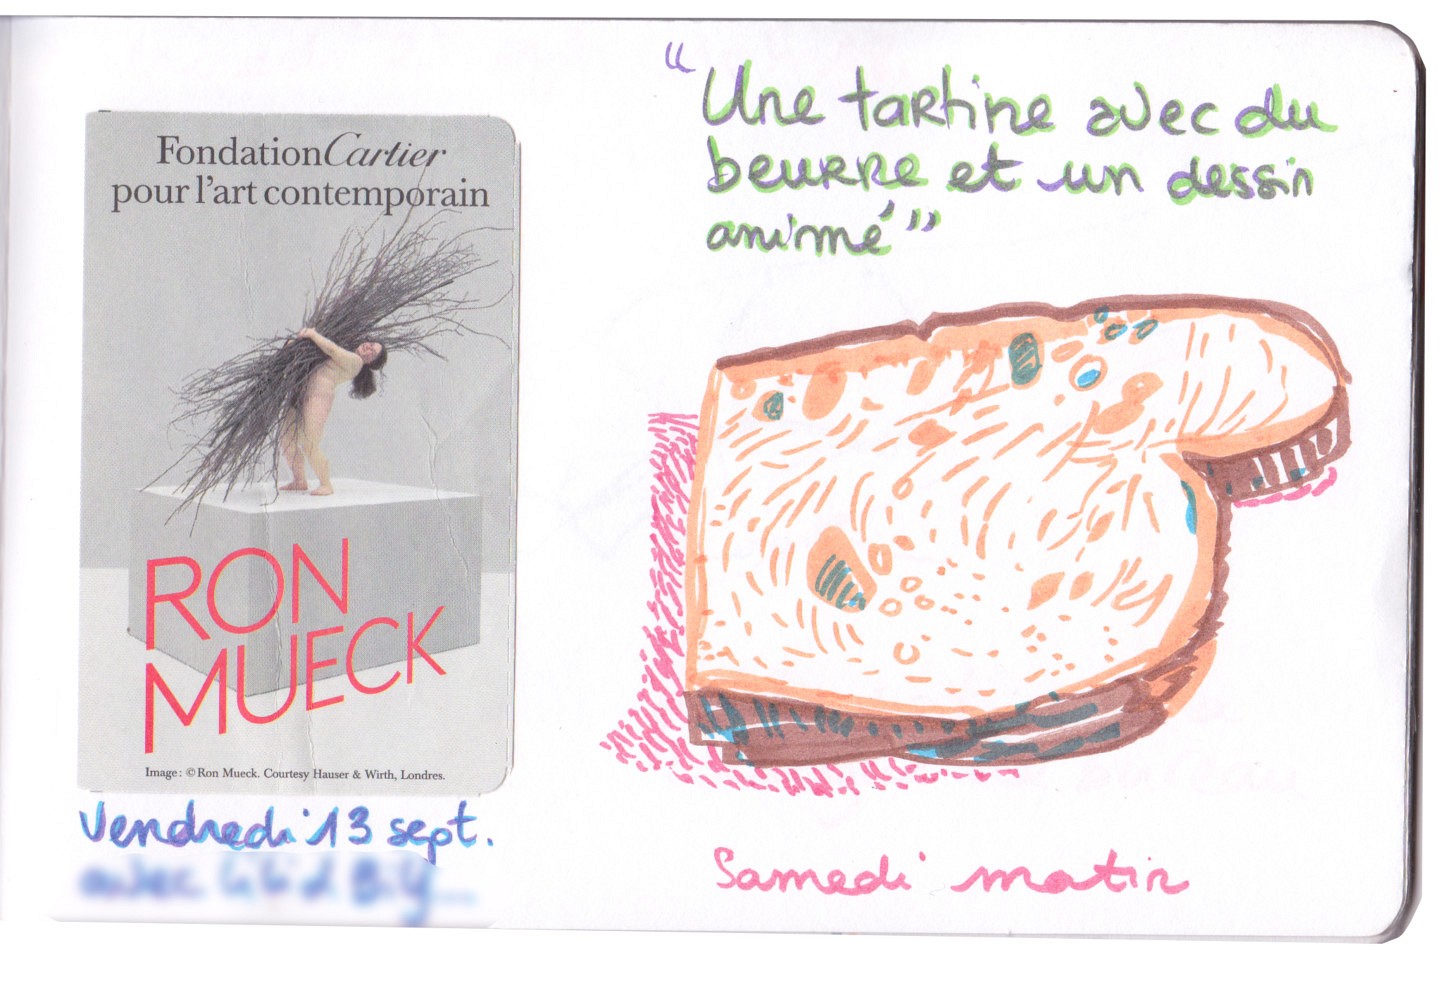 Fondation Cartier
pour l'art contemporain
RON
MUECK
Image : © Ron Mueck. Courtesy Hauser & Wirth, Londres.
Vendredi 13 sept.
avec
"Une tartine avec du
beurre et un dessin
animé"
Samedi matin